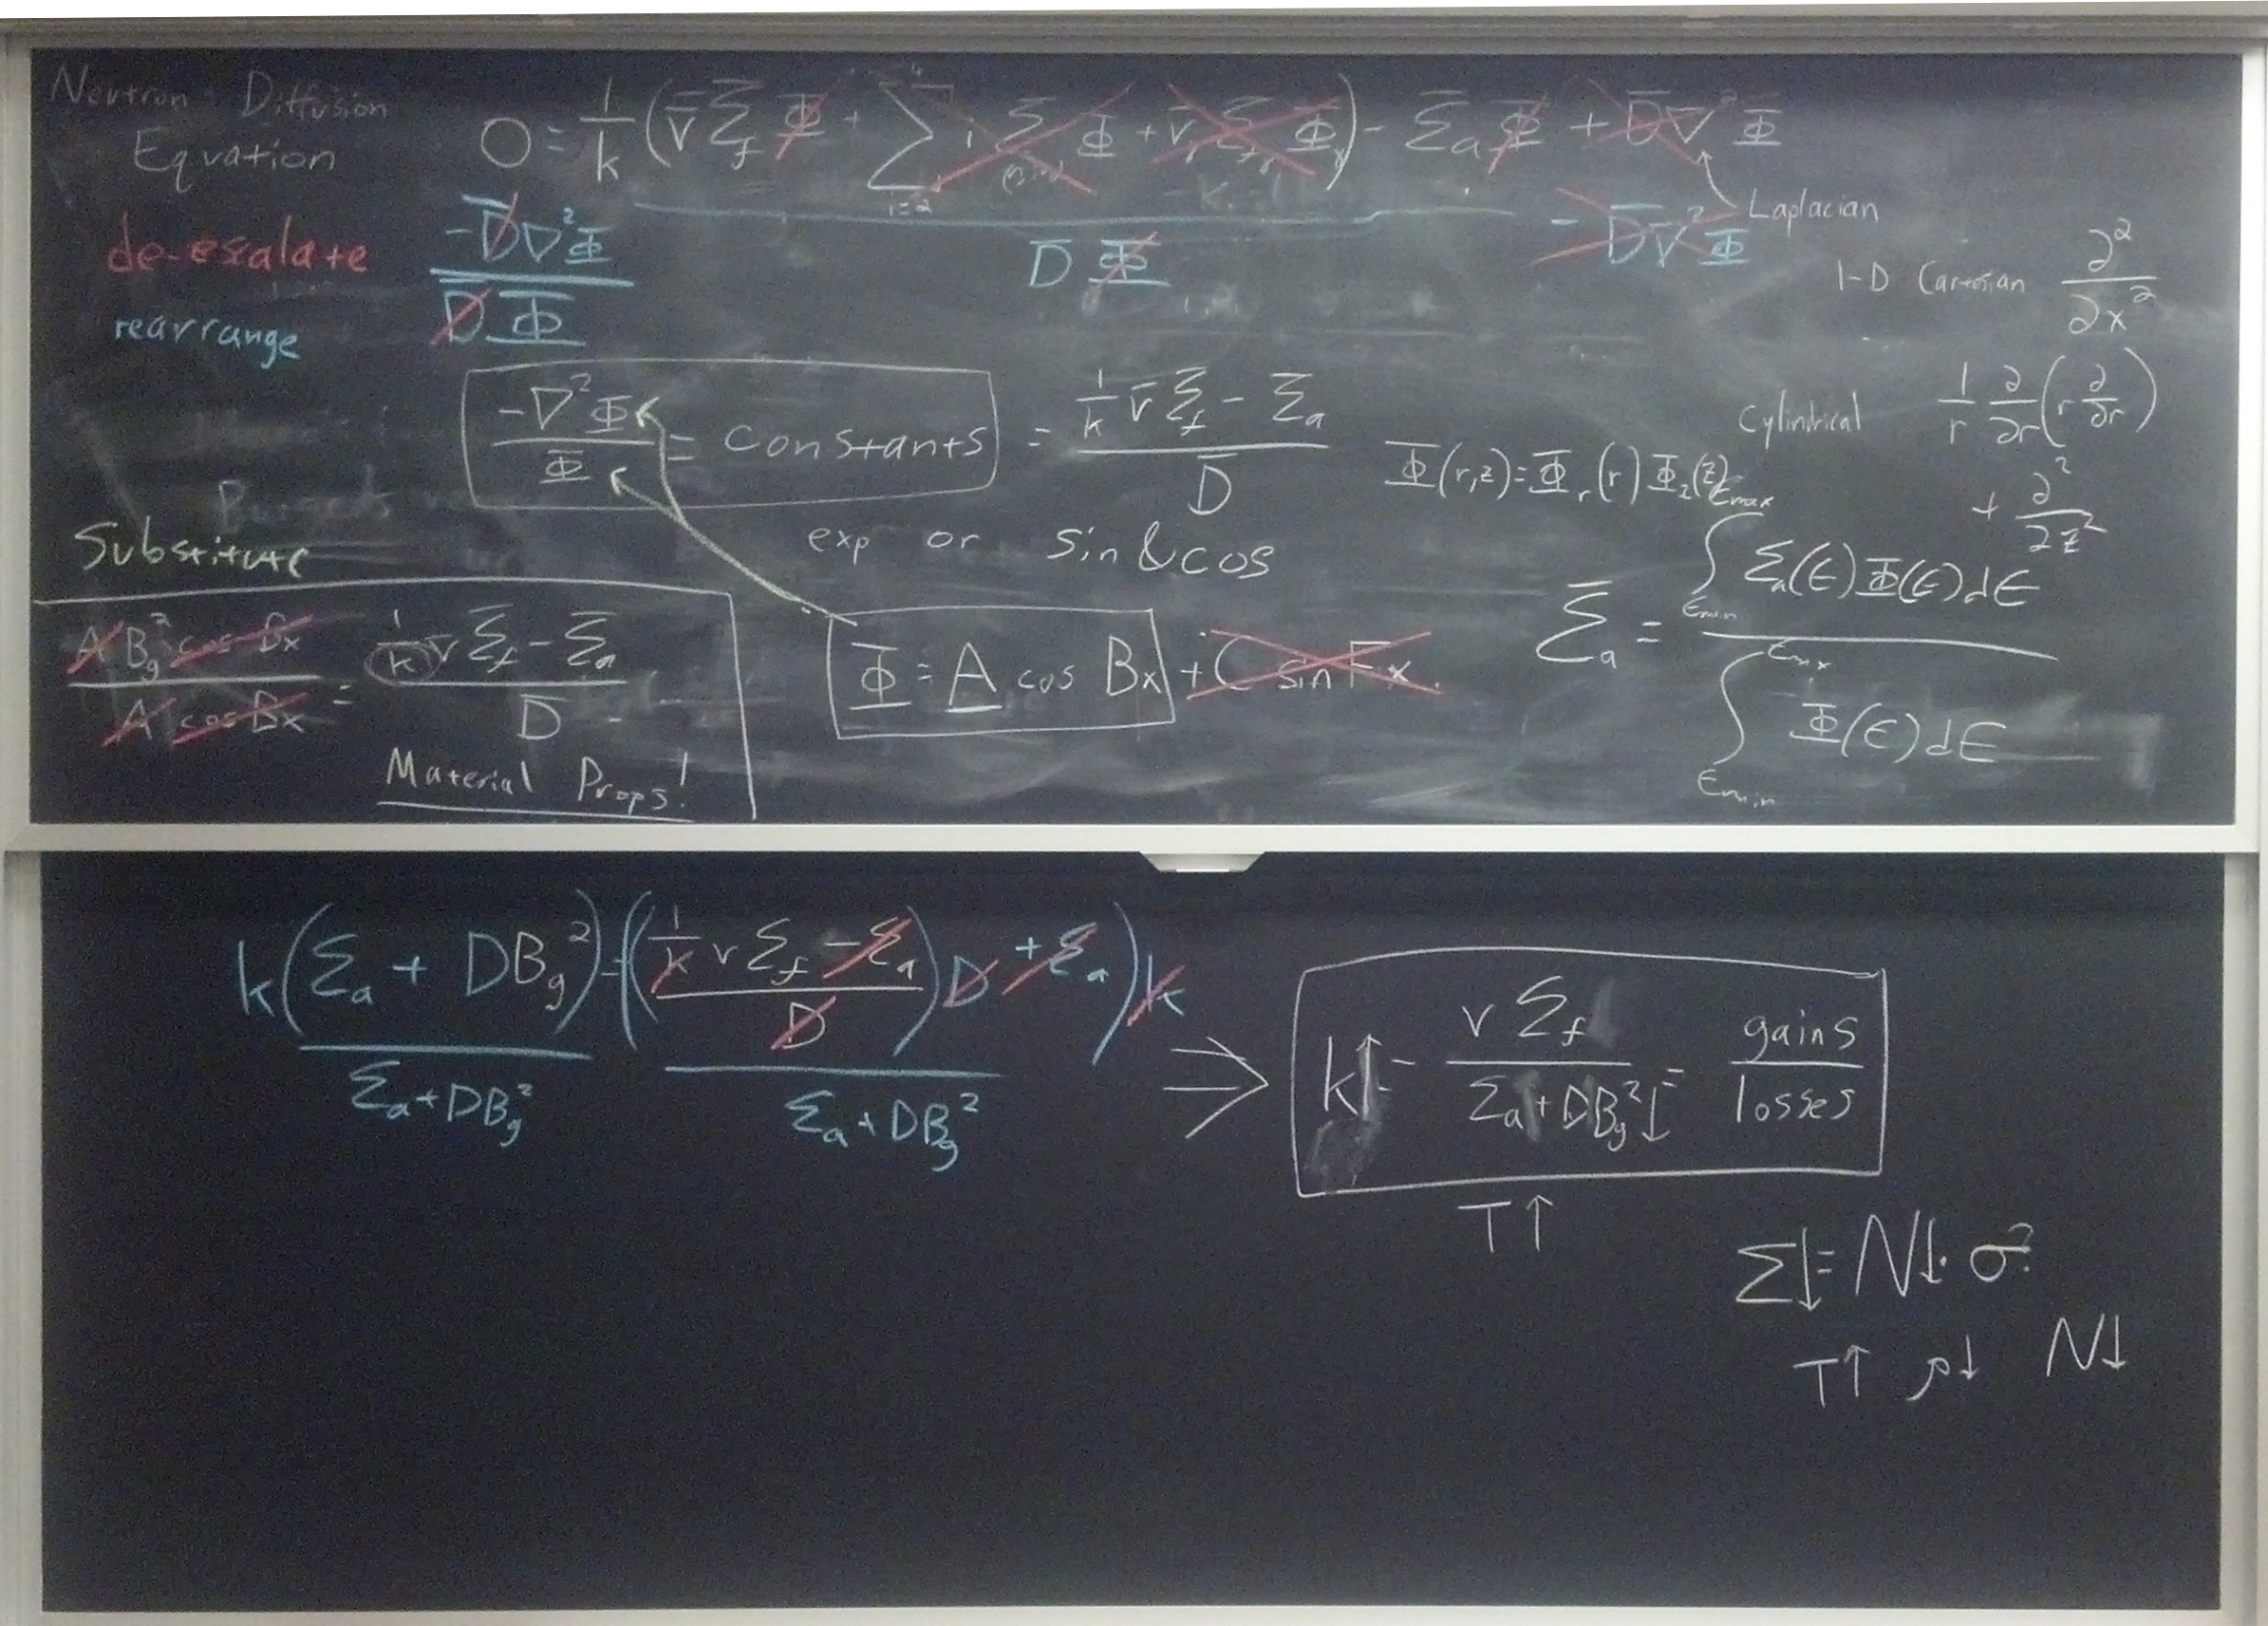 Neutron Diffusion
Equation
0 = 1/k (ν̄ Σ̄_f Φ + Σ_{i=2}^{4} i Σ_{(n,in)} Φ + ν̄_γ Σ_{fγ} Φ_γ) - Σ̄_a Φ + D̄∇²Φ
Laplacian
de-escalate
-D̄∇²Φ / D̄Φ
D̄ Φ
- D̄∇²Φ
rearrange
1-D Cartesian ∂²/∂x²
-∇²Φ / Φ = constants = (1/k ν̄ Σ̄_f - Σ̄_a) / D̄
Cylindrical 1/r ∂/∂r (r ∂/∂r)
+ ∂²/∂z²
Φ(r,z)=Φ_r(r) Φ_z(z)
exp or sin & cos
Substitute
A B_g² cos Bx / A cos Bx = (1/k ν̄ Σ̄_f - Σ̄_a) / D̄
Material Props!
Φ = A cos Bx + C sin Fx
Σ̄_a = ∫_{Emin}^{Emax} Σ_a(E) Φ(E) dE / ∫_{Emin}^{Emax} Φ(E) dE
k(Σ_a + DB_g²) / Σ_a + DB_g² = ((1/k ν Σ_f - Σ_a / D) D + Σ_a) k / Σ_a + DB_g²
⇒ k↑ = ν Σ_f / Σ_a + DB_g²↓ = gains / losses
T↑
Σ↓ = N↓ · σ?
T↑ ρ↓ N↓